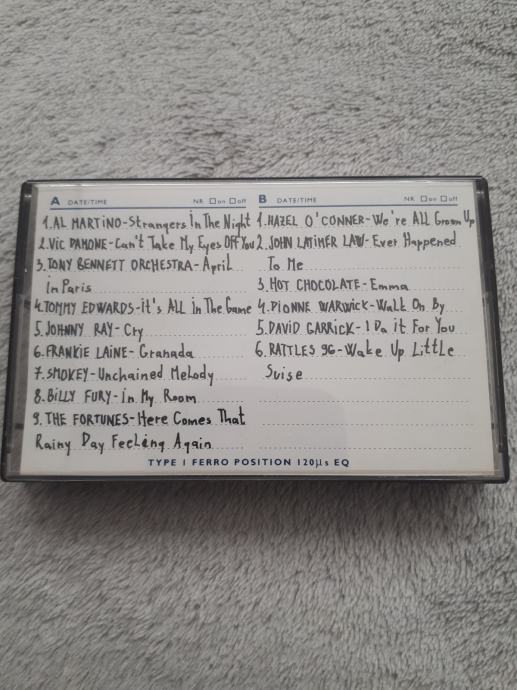 A DATE/TIME NR □on □off
1.AL MARTINO-Strangers In The Night
2.Vic DAMONE-Can't Take My Eyes Off You
3.TONY BENNETT ORCHESTRA-April
in Paris
4.TOMMY EDWARDS-it's ALL in The Game
5.JOHNNY RAY-Cry
6.FRANKIE LAINE-Granada
7.SMOKEY-Unchained Melody
8.BILLY FURY-in My Room
9.THE FORTUNES-Here Comes That
Rainy Day Feeling Again
B DATE/TIME NR □on □off
1.HAZEL O'CONNER-We're All Grown Up
2.JOHN LATIMER LAW-Ever Happened
To Me
3.HOT CHOCOLATE-Emma
4.DIONNE WARWICK-Walk On By
5.DAVID GARRICK-I Do it For You
6.RATTLES 96-Wake Up Little
Suise
TYPE I FERRO POSITION 120µs EQ